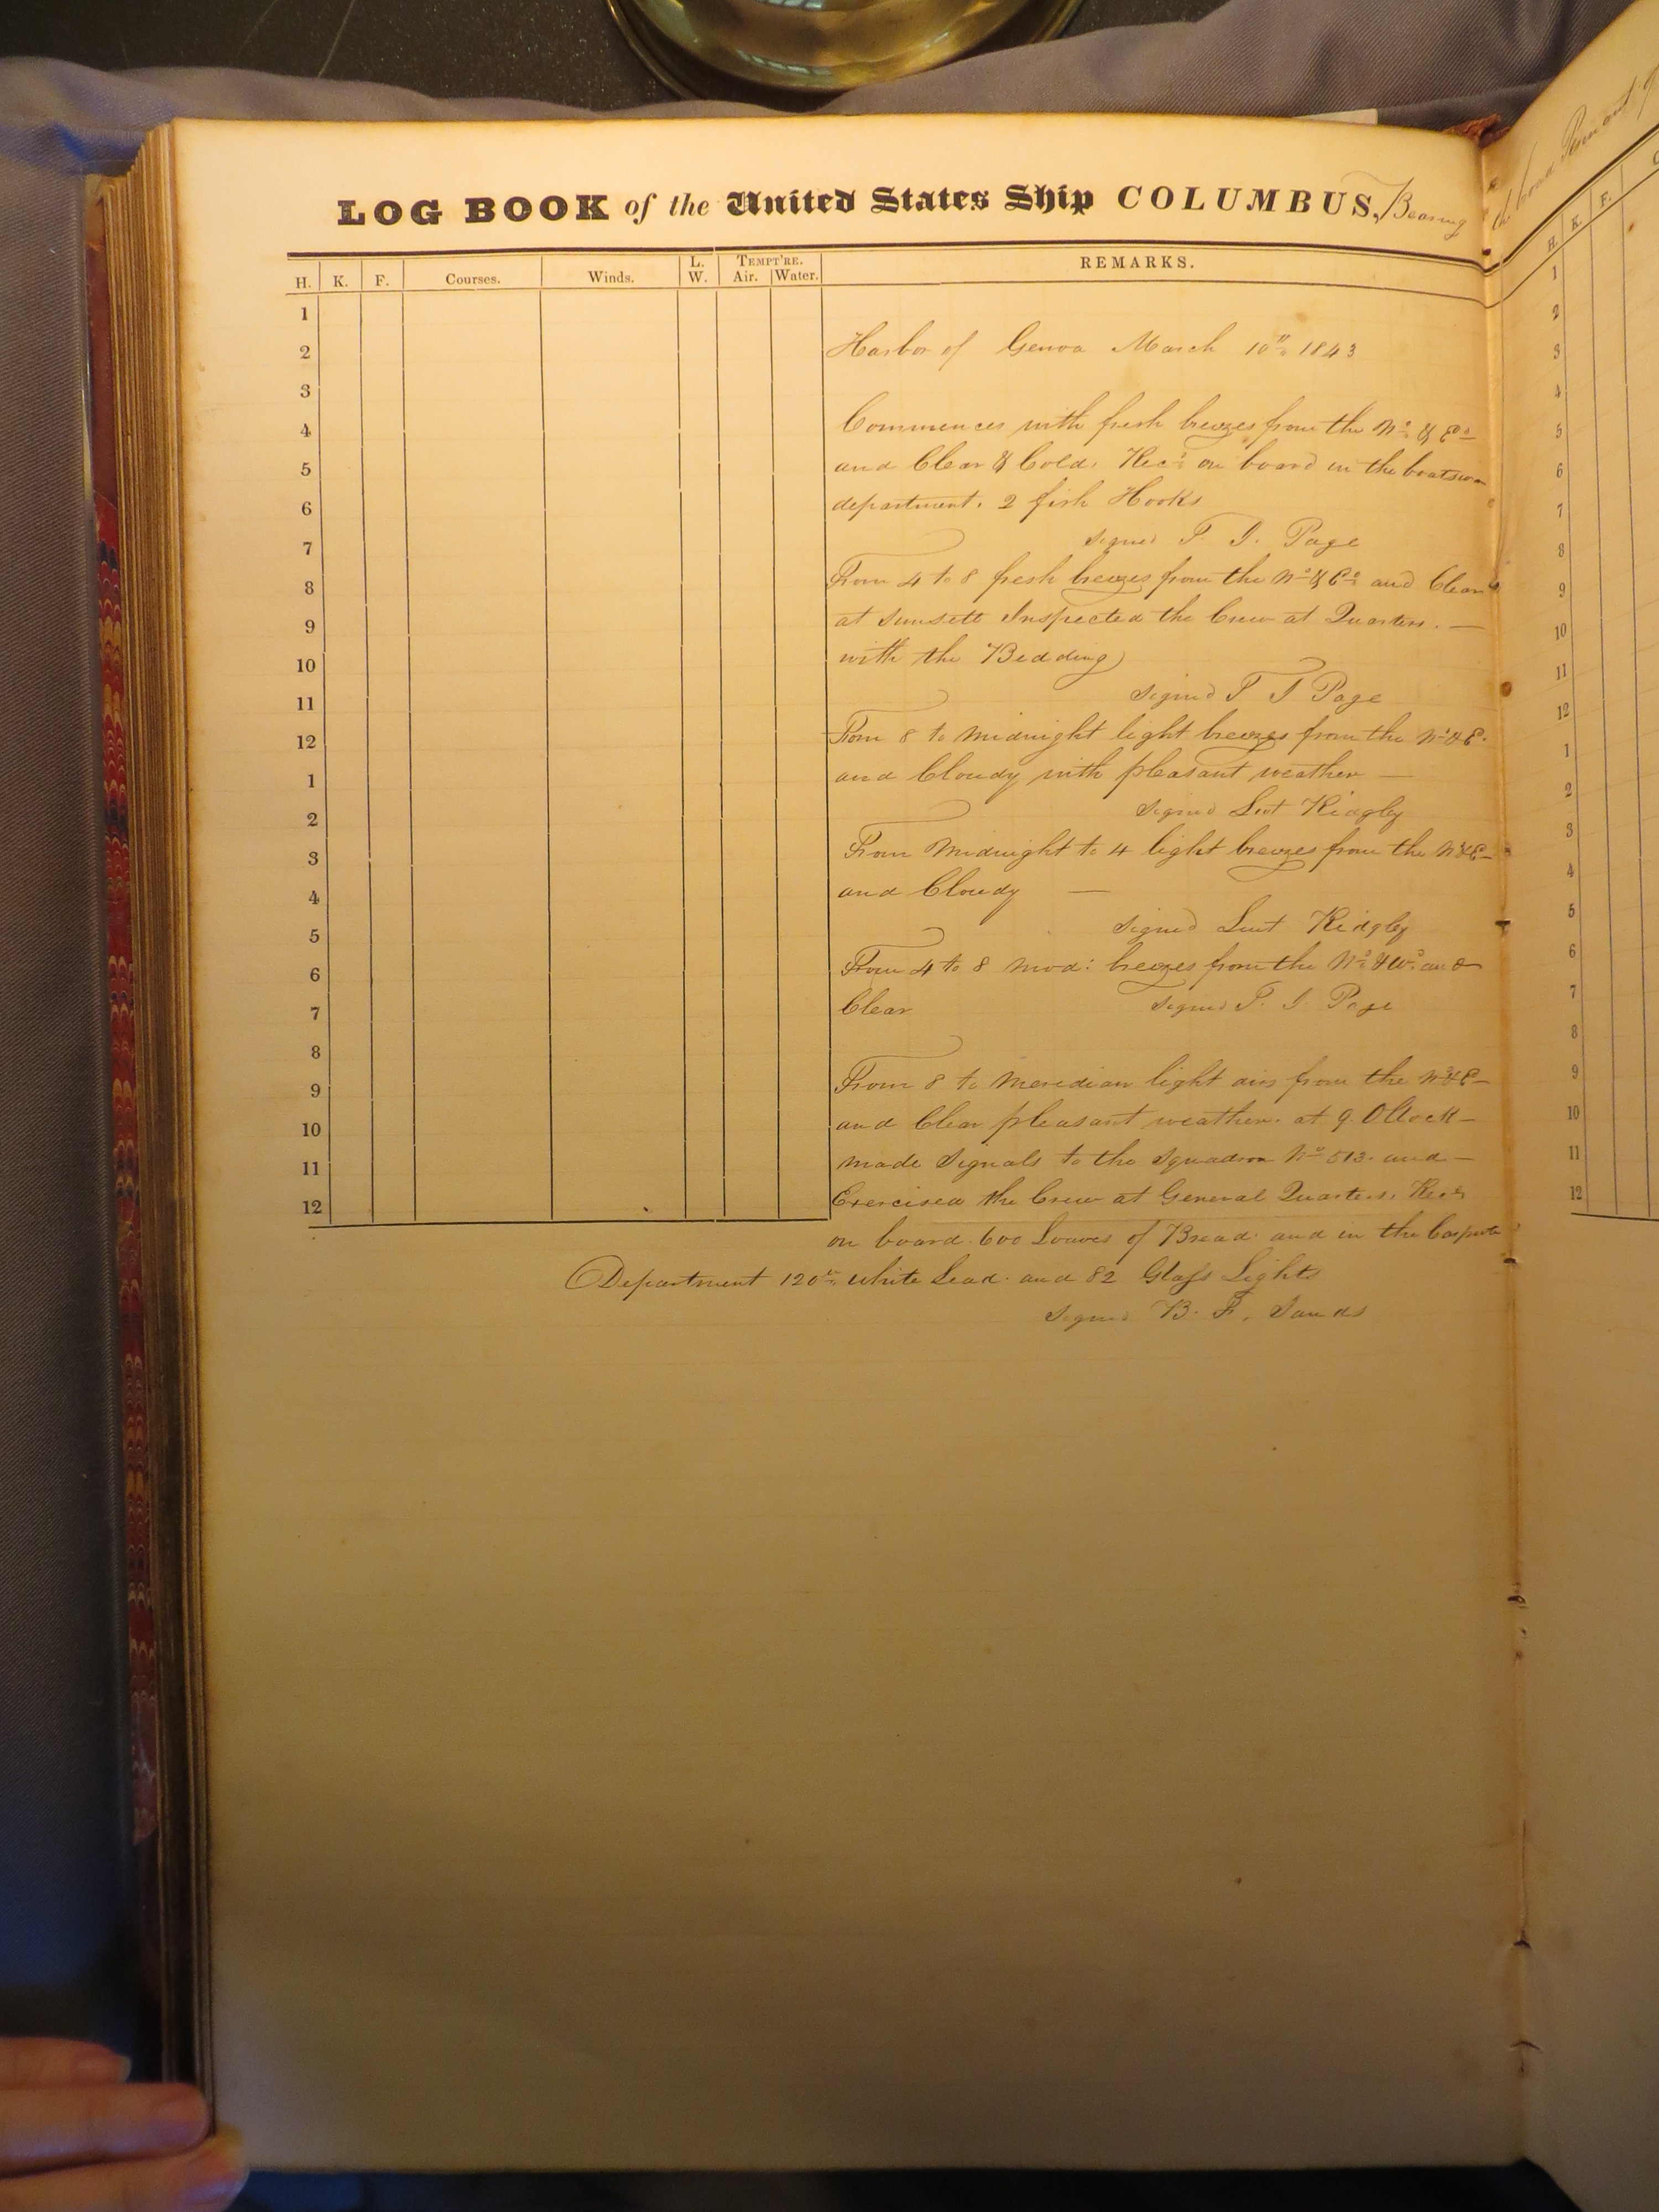 LOG BOOK of the United States Ship COLUMBUS, Bearing
H. K. F. Courses. Winds. L. W. TEMPT'RE. Air. Water. REMARKS.
1
2
3
4
5
6
7
8
9
10
11
12
1
2
3
4
5
6
7
8
9
10
11
12
Harbor of Genoa March 10th 1843
Commences with fresh breezes from the No & Ed
and Clear & Cold. Recd on board in the boatswn
department. 2 fish Hooks
signed T. J. Page
From 4 to 8 fresh breezes from the No & Ed and Clear
at sunsett Inspected the Crew at Quarters. —
with the Bedding
signed T J Page
From 8 to Midnight light breezes from the Nd & E.
and Cloudy with pleasant weather —
signed Lieut Ridgly
From Midnight to 4 light breezes from the Nd & E —
and Cloudy —
signed Lieut Ridgly
From 4 to 8 mod: breezes from the Nd & Wd and
Clear signed T. J Page
From 8 to Meredian light airs from the Nd & E —
and Clear pleasant weather. at 9. OClock —
made Signals to the Squadron No 513. and —
Exercised the Crew at General Quarters. Recd
on board. 600 Loaves of Bread. and in the
Department 120 lbs White Lead. and 82 Glass Lights
Signed B. F. Sands
Pennant
H. K. F.
1
2
3
4
5
6
7
8
9
10
11
12
1
2
3
4
5
6
7
8
9
10
11
12